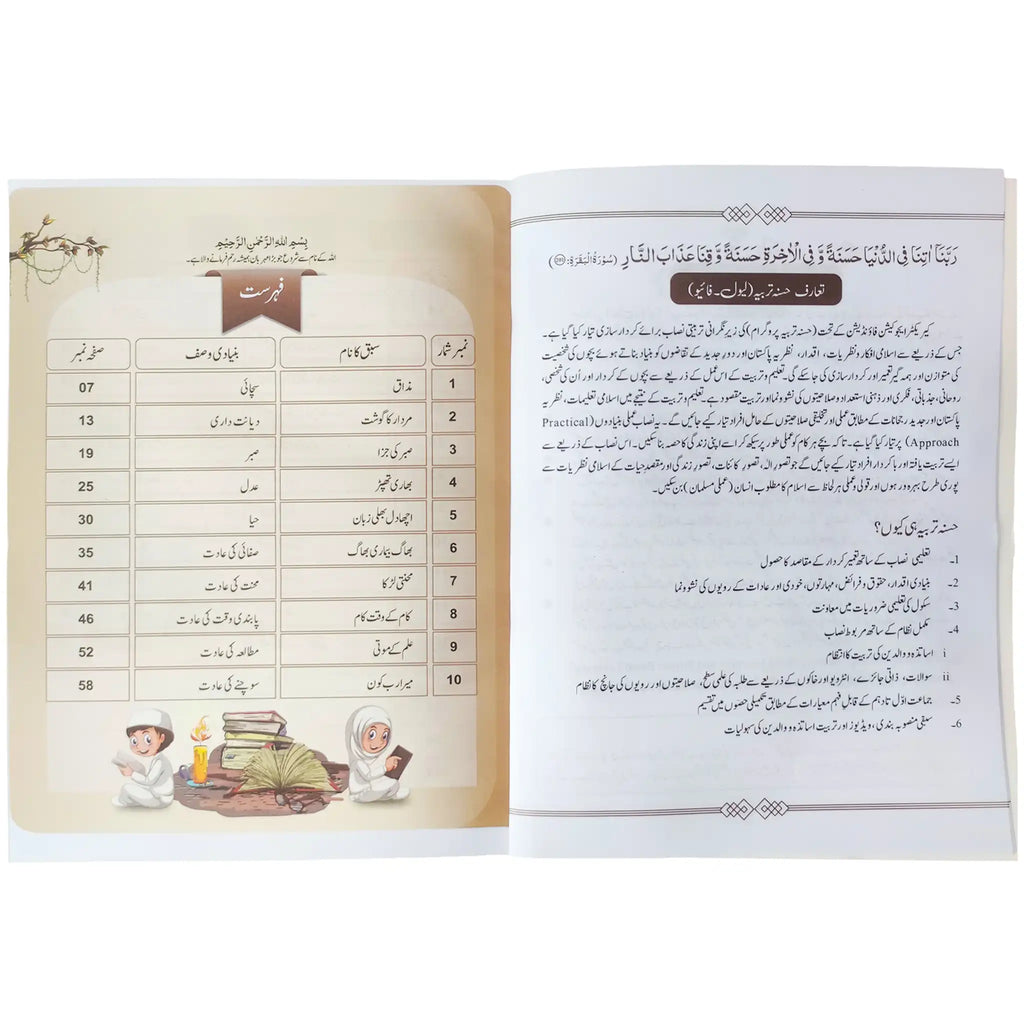 رَبَّنَاۤ اٰتِنَا فِی الدُّنْیَا حَسَنَةً وَّ فِی الْاٰخِرَةِ حَسَنَةً وَّ قِنَا عَذَابَ النَّارِ (سُوْرَةُ الْبَقَرَةِ:)
تعارف حسنہ تربیہ (لیول۔ فائیو)
کیریکٹر ایجوکیشن فاؤنڈیشن کے تحت (حسنہ تربیہ پروگرام) کی زیرِ نگرانی تربیتی نصاب برائے کردار سازی تیار کیا گیا ہے۔
جس کے ذریعے سے اسلامی افکار و نظریات، اقدار، نظریہ پاکستان اور دورِ جدید کے تقاضوں کو بنیاد بناتے ہوئے بچوں کی شخصیت
کی متوازن اور ہمہ گیر تعمیر اور کردار سازی کی جا سکے گی۔ تعلیم و تربیت کے اس عمل کے ذریعے سے بچوں کے کردار اور اُن کی شخصی،
روحانی، جذباتی، فکری اور ذہنی استعداد و صلاحیتوں کی نشوونما اور تربیت مقصود ہے۔ تعلیم و تربیت کے نتیجے میں اسلامی تعلیمات، نظریہ
پاکستان اور جدید رجحانات کے مطابق عملی اور تخلیقی صلاحیتوں کے حامل افراد تیار کیے جائیں گے۔ یہ نصاب عملی بنیادوں (Practical
Approach) پر تیار کیا گیا ہے۔ تاکہ بچے ہر کام کو عملی طور پر سیکھ کر اسے اپنی زندگی کا حصہ بنا سکیں۔ اس نصاب کے ذریعے سے
ایسے تربیت یافتہ اور باکردار افراد تیار کیے جائیں گے جو تصورِ الٰہ، تصورِ کائنات، تصورِ زندگی اور مقصدِ حیات کے اسلامی نظریات سے
پوری طرح بہرہ ور ہوں اور قولی و عملی ہر لحاظ سے اسلام کا مطلوب انسان (عملی مسلمان) بن سکیں۔
حسنہ تربیہ ہی کیوں؟
1۔ تعلیمی نصاب کے ساتھ تعمیرِ کردار کے مقاصد کا حصول
2۔ بنیادی اقدار، حقوق و فرائض، مہارتوں، خودی اور عادات کے رویوں کی نشوونما
3۔ سکول کی تعلیمی ضروریات میں معاونت
4۔ مکمل نظام کے ساتھ مربوط نصاب
i اساتذہ و والدین کی تربیت کا انتظام
ii سوالات، ذاتی جائزے، انٹرویو اور خاکوں کے ذریعے سے طلبہ کی علمی سطح، صلاحیتوں اور رویوں کی جانچ کا نظام
5۔ جماعت اوّل تا دہم کے قابلِ فہم معیارات کے مطابق تکمیلی حصوں میں تقسیم
6۔ سبقی منصوبہ بندی، ویڈیوز اور تربیت اساتذہ و والدین کی سہولیات
بِسْمِ اللهِ الرَّحْمٰنِ الرَّحِیْمِ
اللہ کے نام سے شروع جو بڑا مہربان ہمیشہ رحم فرمانے والا ہے۔
فہرست
نمبر شمار سبق کا نام بنیادی وصف صفحہ نمبر
1 مذاق سچائی 07
2 مردار کا گوشت دیانت داری 13
3 صبر کی جزا صبر 19
4 بھاری تھپڑ عدل 25
5 اچھا دل بھلی زبان حیا 30
6 بھاگ بیماری بھاگ صفائی کی عادت 35
7 محنتی لڑکا محنت کی عادت 41
8 کام کے وقت کام پابندی وقت کی عادت 46
9 علم کے موتی مطالعہ کی عادت 52
10 میرا رب کون سوچنے کی عادت 58